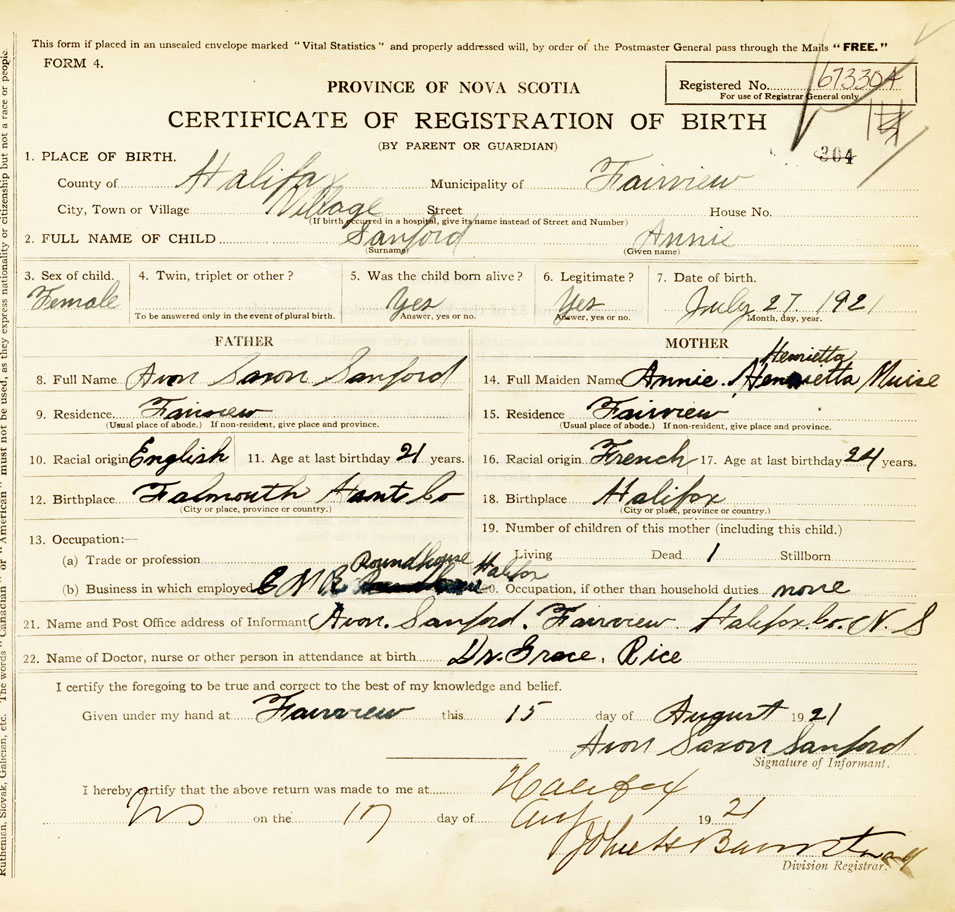 This form if placed in an unsealed envelope marked "Vital Statistics" and properly addressed will, by order of the Postmaster General pass through the Mails "FREE."
FORM 4.
PROVINCE OF NOVA SCOTIA
Registered No. 673304
For use of Registrar General only
CERTIFICATE OF REGISTRATION OF BIRTH
(BY PARENT OR GUARDIAN)
304
1. PLACE OF BIRTH.
County of Halifax Municipality of Fairview
City, Town or Village Village Street House No.
(If birth occurred in a hospital, give its name instead of Street and Number)
2. FULL NAME OF CHILD Sanford Annie
(Surname) (Given name)
3. Sex of child. 4. Twin, triplet or other? 5. Was the child born alive? 6. Legitimate? 7. Date of birth.
Female Yes Yes July 27 1921
To be answered only in the event of plural birth. Answer, yes or no. Answer, yes or no. Month, day, year.
FATHER MOTHER
Henrietta
8. Full Name Avon Saxon Sanford 14. Full Maiden Name Annie. Henrietta Muise
9. Residence Fairview 15. Residence Fairview
(Usual place of abode.) If non-resident, give place and province. (Usual place of abode.) If non-resident, give place and province.
10. Racial origin English 11. Age at last birthday 21 years. 16. Racial origin French 17. Age at last birthday 24 years.
12. Birthplace Falmouth Hants Co 18. Birthplace Halifax
(City or place, province or country.) (City or place, province or country.)
19. Number of children of this mother (including this child.)
13. Occupation:—
(a) Trade or profession Roundhouse Halifax Living Dead 1 Stillborn
(b) Business in which employed C N R 20. Occupation, if other than household duties none
21. Name and Post Office address of Informant Avon. Sanford. Fairview Halifax. Co. N. S
22. Name of Doctor, nurse or other person in attendance at birth Dr. Grace. Rice
I certify the foregoing to be true and correct to the best of my knowledge and belief.
Given under my hand at Fairview this 15 day of August 1921
Avon Saxon Sanford
Signature of Informant.
I hereby certify that the above return was made to me at Halifax
NS on the 17 day of Aug 1921
John H
Division Registrar.
Ruthenian, Slovak, Galician, etc. The words "Canadian" or "American" must not be used, as they express nationality or citizenship but not a race or people.